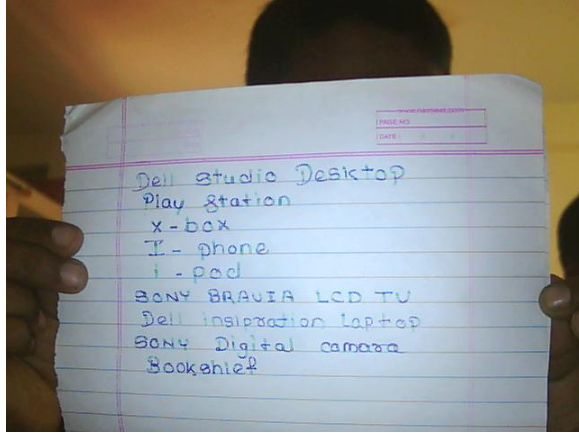 www.navneet.com
PAGE NO.
DATE :
Dell Studio Desktop
Play Station
x-box
I-phone
i-pod
SONY BRAVIA LCD TV
Dell insipration Laptop
SONY Digital camara
Bookshief